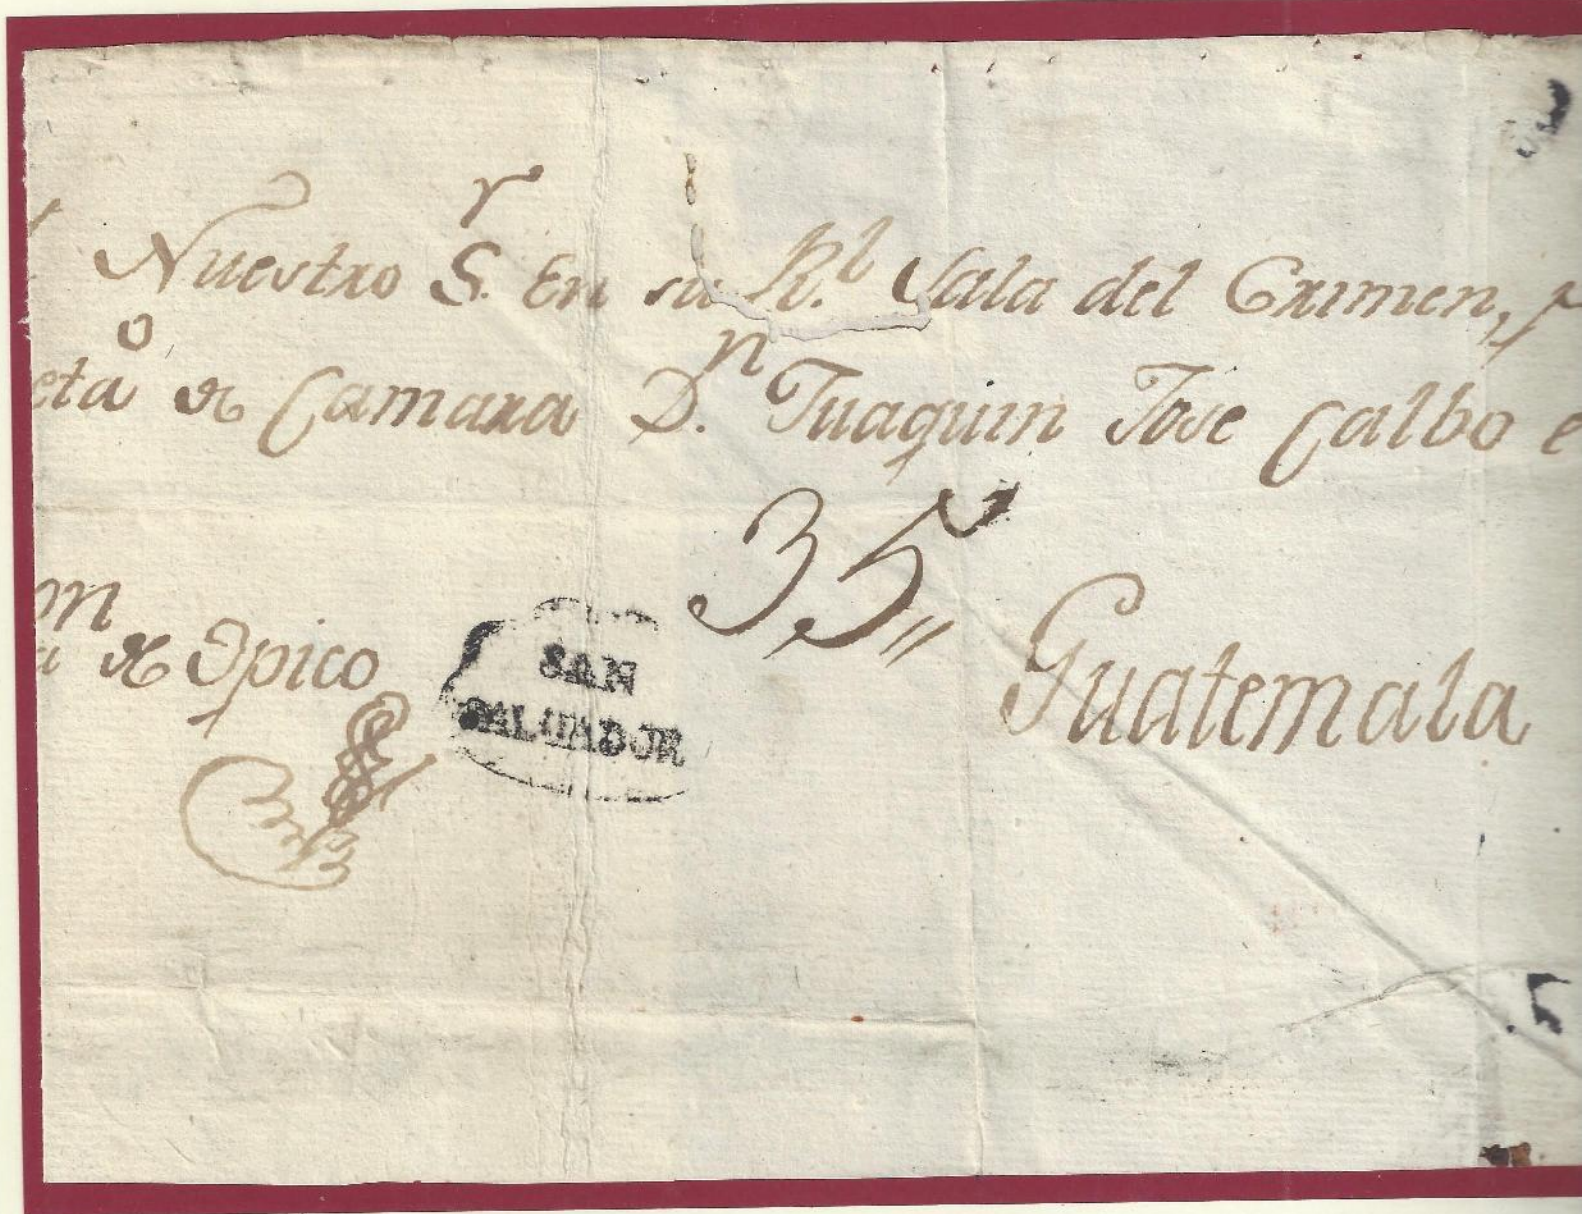 Nuestro S.r En su R.l Sala del Crimen, p
eta.o de Camara D.n Juaquin Jose Calbo e
35,,
on
a de Opico
SAN
SALUADOR
Guatemala